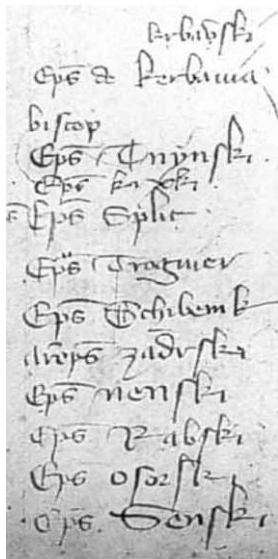 krbavski
Eps de kerbauia
biscop
Eps Tnynski
Eps ki ski
Eps Split
Eps Troguier
Eps Schibenik
Archeps zadrski
Eps nenski
Eps Rabski
Eps osorski
Eps Senski